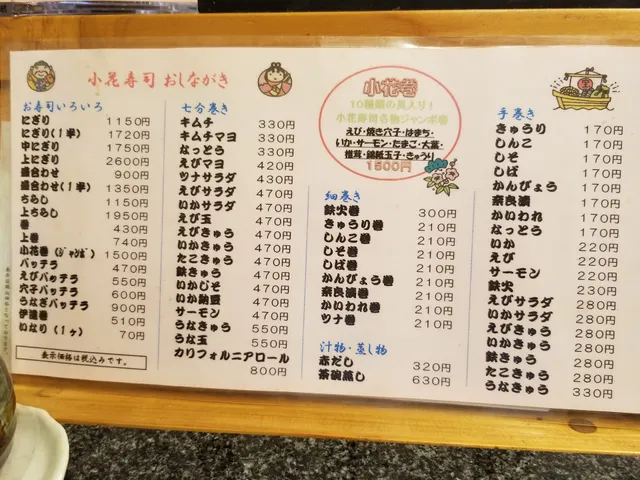 小花寿司 おしながき
お寿司いろいろ
にぎり 1150円
にぎり(1半) 1720円
中にぎり 1750円
上にぎり 2600円
盛合わせ 900円
盛合わせ(1半) 1350円
ちらし 1150円
上ちらし 1950円
巻 430円
上巻 740円
小花巻(ジャンボ) 1500円
バッテラ 470円
えびバッテラ 550円
穴子バッテラ 600円
うなぎバッテラ 900円
伊達巻 510円
いなり(1ヶ) 70円
表示価格は税込みです。
七分巻き
キムチ 330円
キムチマヨ 330円
なっとう 330円
えびマヨ 420円
ツナサラダ 430円
えびサラダ 470円
いかサラダ 470円
えび玉 470円
えびきゅう 470円
いかきゅう 470円
たこきゅう 470円
鉄きゅう 470円
いかじそ 470円
いか納豆 470円
サーモン 470円
うなきゅう 550円
うな玉 550円
カリフォルニアロール 800円
小花巻
10種類の具入り!
小花寿司名物ジャンボ巻
えび・焼き穴子・はまち・
いか・サーモン・たまご・大葉・
椎茸・錦糸玉子・きゅうり
1500円
細巻き
鉄火巻 300円
きゅうり巻 210円
しんこ巻 210円
しそ巻 210円
しば巻 210円
かんぴょう巻 210円
奈良漬巻 210円
かいわれ巻 210円
ツナ巻 210円
汁物・蒸し物
赤だし 320円
茶碗蒸し 630円
手巻き
きゅうり 170円
しんこ 170円
しそ 170円
しば 170円
かんぴょう 170円
奈良漬 170円
かいわれ 170円
なっとう 170円
いか 220円
えび 220円
サーモン 220円
鉄火 230円
えびサラダ 280円
いかサラダ 280円
えびきゅう 280円
いかきゅう 280円
鉄きゅう 280円
たこきゅう 280円
うなきゅう 330円